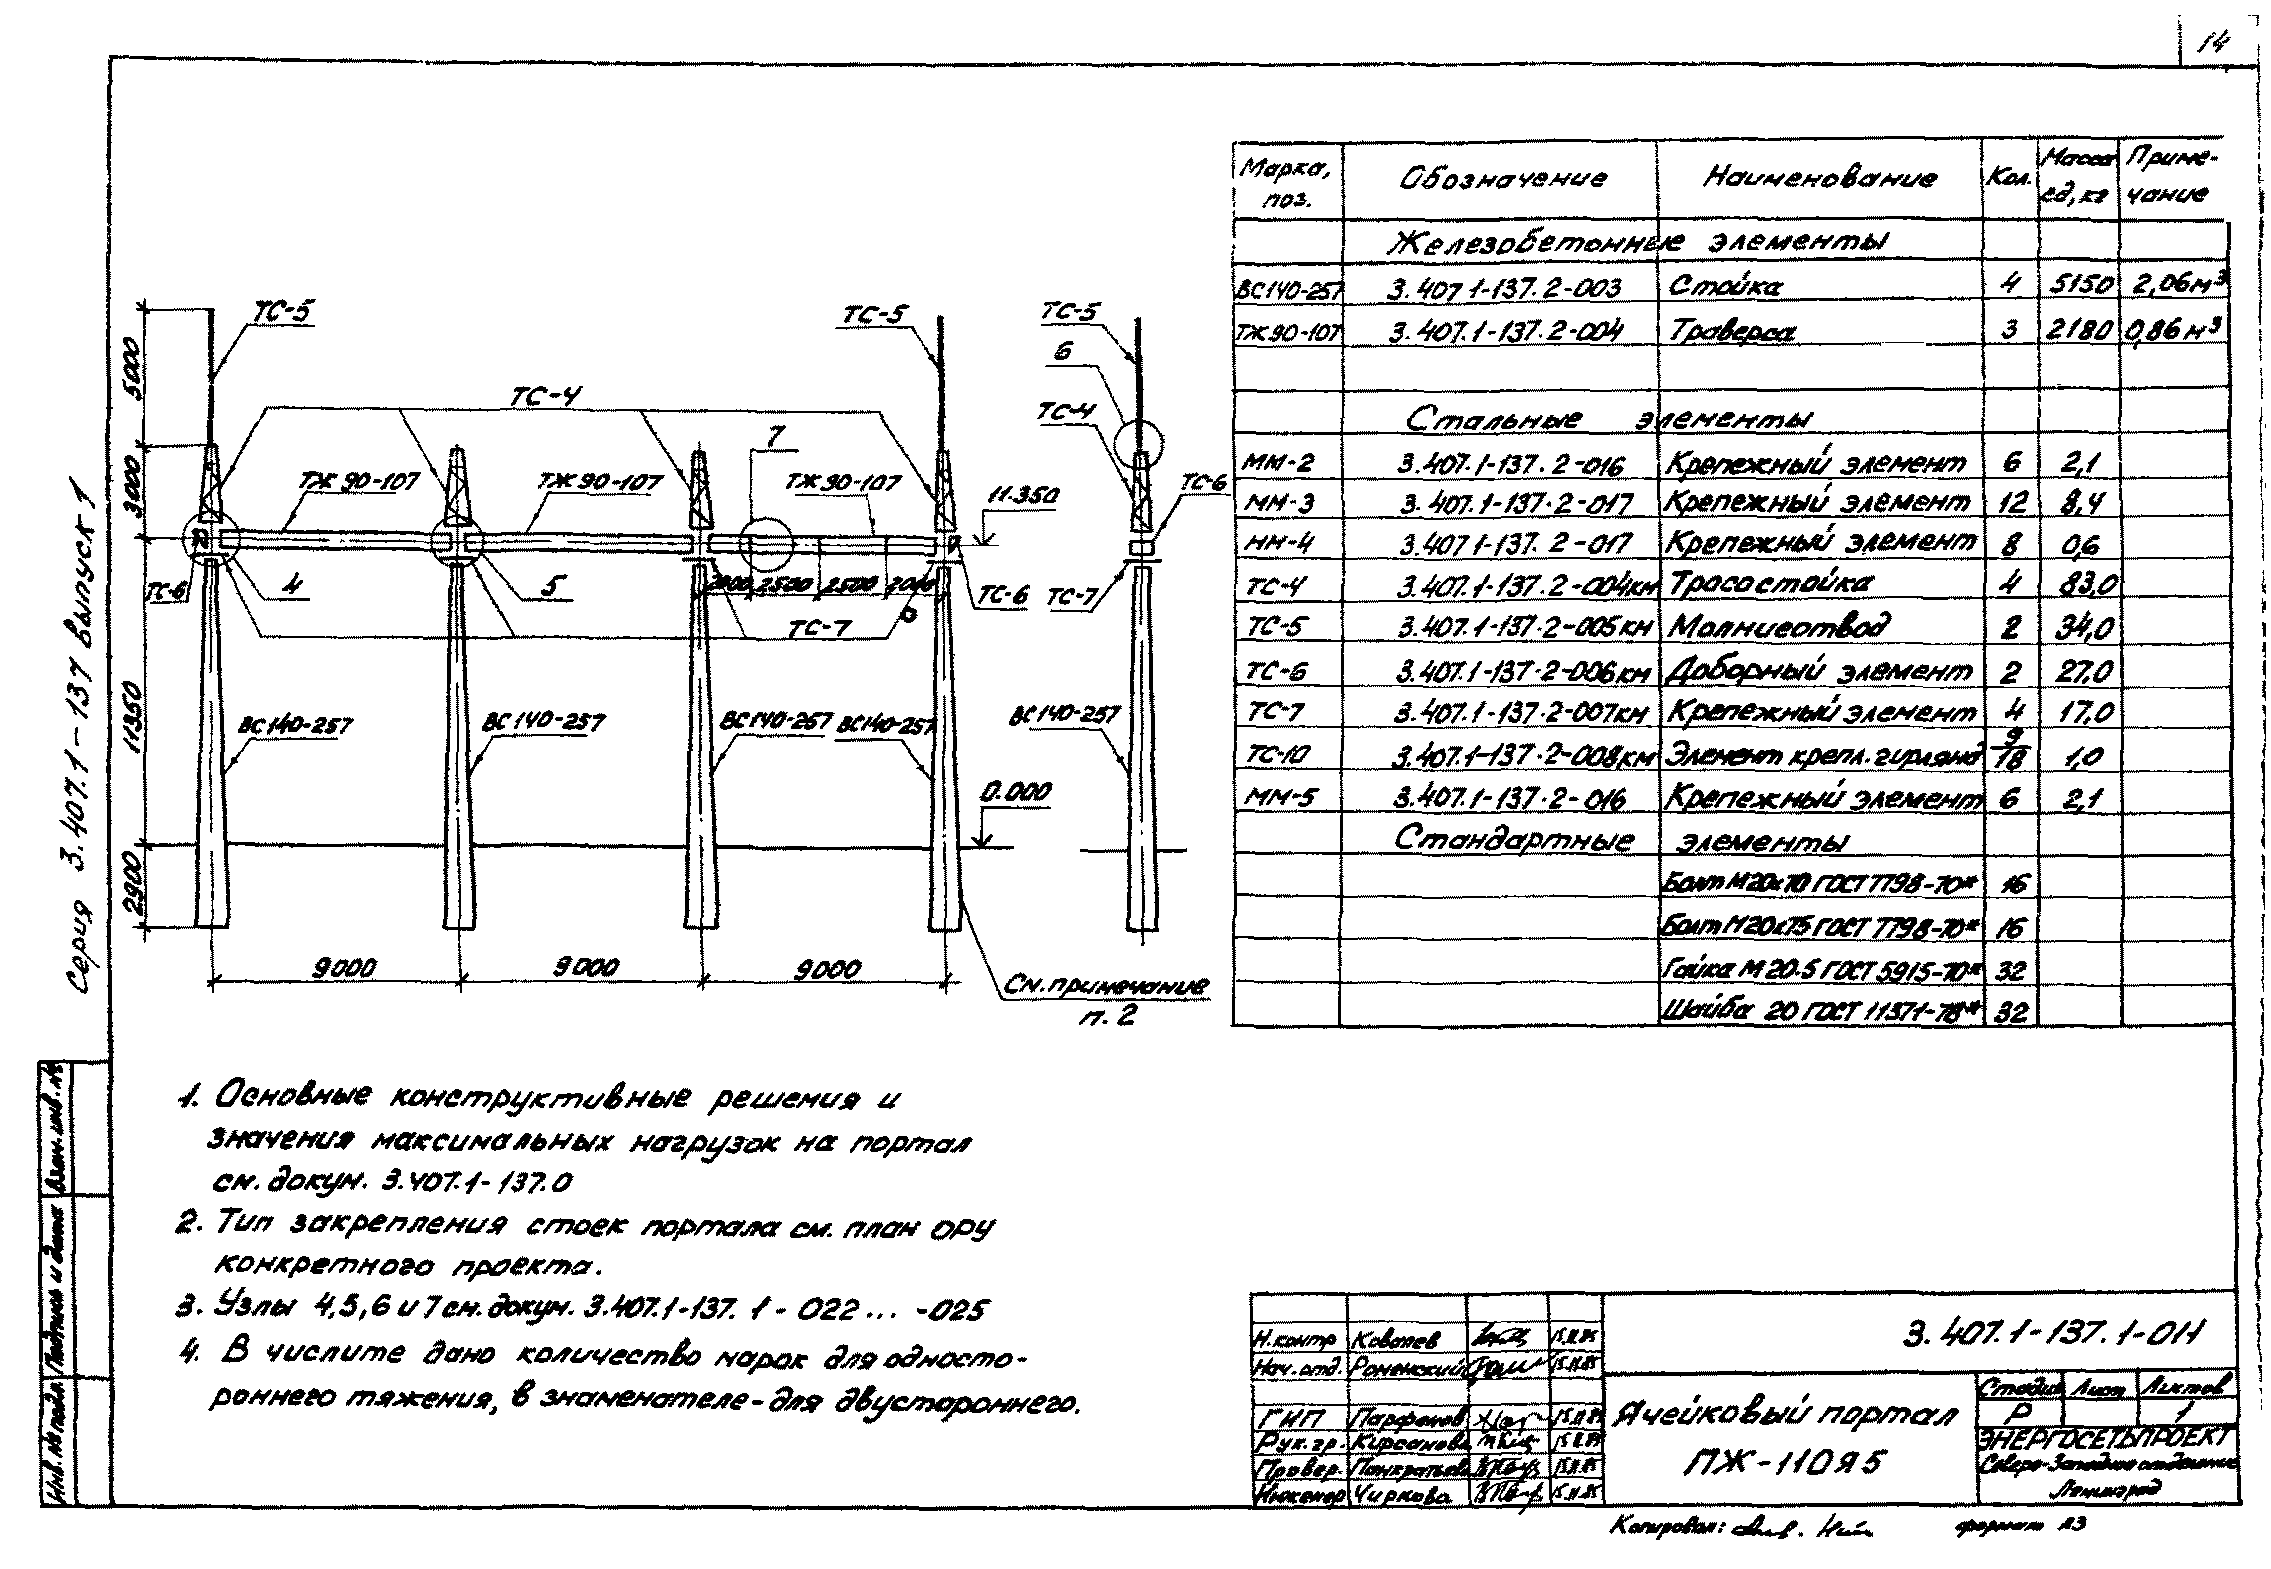 14
Серия 3.407.1-137 Выпуск 1
ТС-5
ТС-5
ТС-5
6
ТС-4
ТС-4
7
ТЖ 90-107
ТЖ 90-107
ТЖ 90-107
11.350
ТС-6
ТС-6
4
5
2500
2500
2000
ТС-6
ТС-7
ТС-7
ВС140-257
ВС140-257
ВС140-257
ВС140-257
ВС140-257
0.000
5000
3000
11350
2900
9000
9000
9000
См. примечание
п. 2
Марка, поз. Обозначение Наименование Кол. Масса ед, кг Приме-чание
Железобетонные элементы
ВС140-257 3.407 1-137.2-003 Стойка 4 5150 2,06м³
ТЖ90-107 3.407.1-137.2-004 Траверса 3 2180 0,86м³
Стальные элементы
ММ-2 3.407.1-137.2-016 Крепежный элемент 6 2,1
ММ-3 3.407.1-137.2-017 Крепежный элемент 12 8,4
ММ-4 3.407 1-137.2-017 Крепежный элемент 8 0,6
ТС-4 3.407.1-137.2-004КМ Тросостойка 4 83,0
ТС-5 3.407.1-137.2-005КМ Молниеотвод 2 34,0
ТС-6 3.407.1-137.2-006КМ Доборный элемент 2 27,0
ТС-7 3.407.1-137.2-007КМ Крепежный элемент 4 17,0
ТС-10 3.407.1-137.2-008КМ Элемент крепл. гирлянд 9/18 1,0
ММ-5 3.407.1-137.2-016 Крепежный элемент 6 2,1
Стандартные элементы
Болт М20х70 ГОСТ 7798-70* 16
Болт М20х75 ГОСТ 7798-70* 16
Гайка М20.5 ГОСТ 5915-70* 32
Шайба 20 ГОСТ 11371-78* 32
1. Основные конструктивные решения и
значения максимальных нагрузок на портал
см. докум. 3.407.1-137.0
2. Тип закрепления стоек портала см. план ОРУ
конкретного проекта.
3. Узлы 4,5,6 и 7 см. докум. 3.407.1-137.1-022... -025
4. В числите дано количество марок для односто-
роннего тяжения, в знаменателе - для двустороннего.
Инв. № подл. Подпись и дата Взам. инв. №
Н.контр Ковалев 15.11.85
Нач. отд. Роменский 15.11.85
ГИП Парфенов 15.11.85
Рук. гр. Кирсанова 15.11.85
Провер. Панкратьева 15.11.85
Инженер Чиркова 15.11.85
3.407.1-137.1-011
Ячейковый портал
ПЖ-110Я5
Стадия Лист Листов
Р 1
ЭНЕРГОСЕТЬПРОЕКТ
Северо-Западное отделение
Ленинград
Копировал:
формат А3